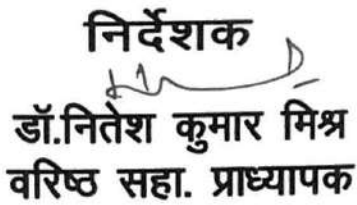 निर्देशक
डॉ.नितेश कुमार मिश्र
वरिष्ठ सहा. प्राध्यापक